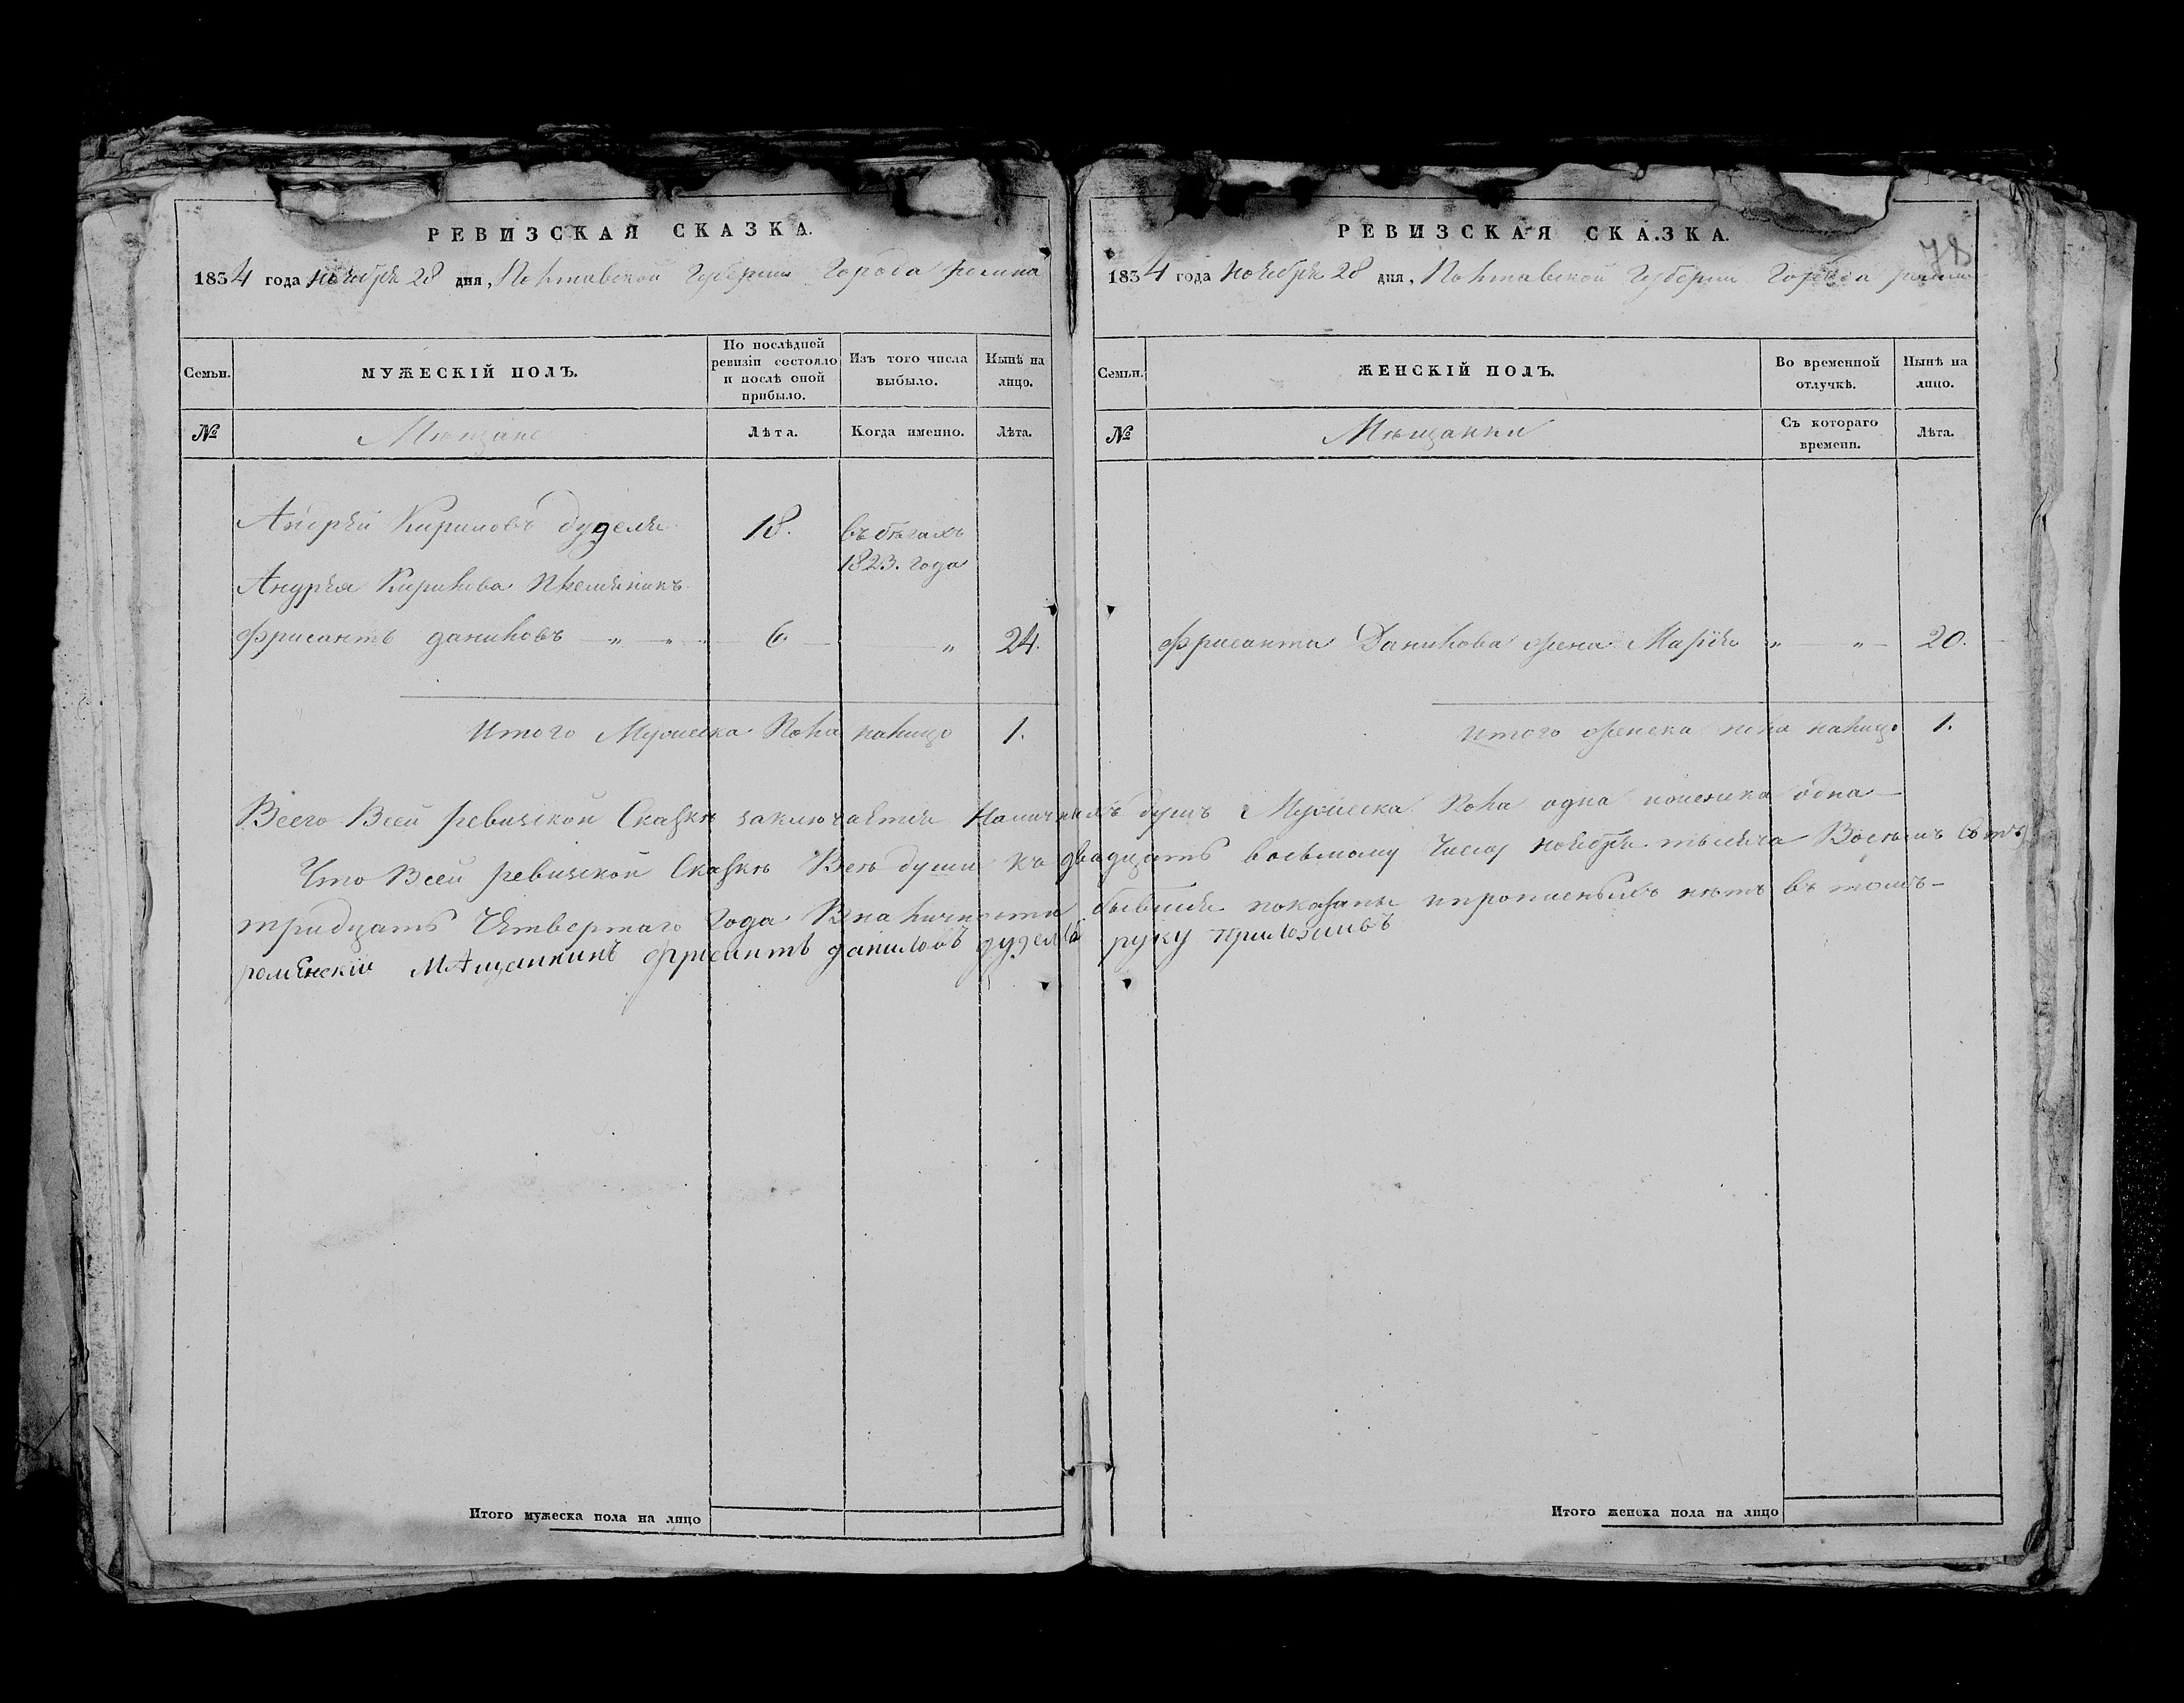 РЕВИЗСКАЯ СКАЗКА.
1834 года ноября 28 дня, Полтавской Губернии Города ромна
Семьи.
МУЖЕСКІЙ ПОЛЪ.
По послѣдней
ревизіи состояло
и послѣ оной
прибыло.
Изъ того числа
выбыло.
Нынѣ на
лицо.
№
Мещане
Лѣта.
Когда именно.
Лѣта.
Андрей Кириловъ дуделя
18.
въ бѣгахъ
1823. года
Андрея Кирилова племянникъ
фрисантъ даниловъ — „ — „
6.
„
24.
Итого Мужеска Пола налицо 1.
78
РЕВИЗСКАЯ СКАЗКА.
1834 года ноября 28 дня, Полтавской Губернии Города ромна
Семьи.
ЖЕНСКІЙ ПОЛЪ.
Во временной
отлучкѣ.
Нынѣ на
лицо.
№
Мѣщанки
Съ котораго
времени.
Лѣта.
фрисанта Данилова жена Марія „ — „ — 20.
итого женска пола налицо 1.
Всего Всей ревизской Сказкѣ заключается Наличныхъ душъ Мужеска Пола одна и женска одна
Что Всей ревизской Сказкѣ Все души къ двадцать восьмому Числу ноября тысяча Восемъ Сотъ
тридцать Четвертаго Года В наличности бывшия показаны и прописныхъ нѣтъ въ томъ—
роменскій фрисантъ даниловъ дуделя руку приложивъ
Итого мужеска пола на лицо
Итого женска пола на лицо